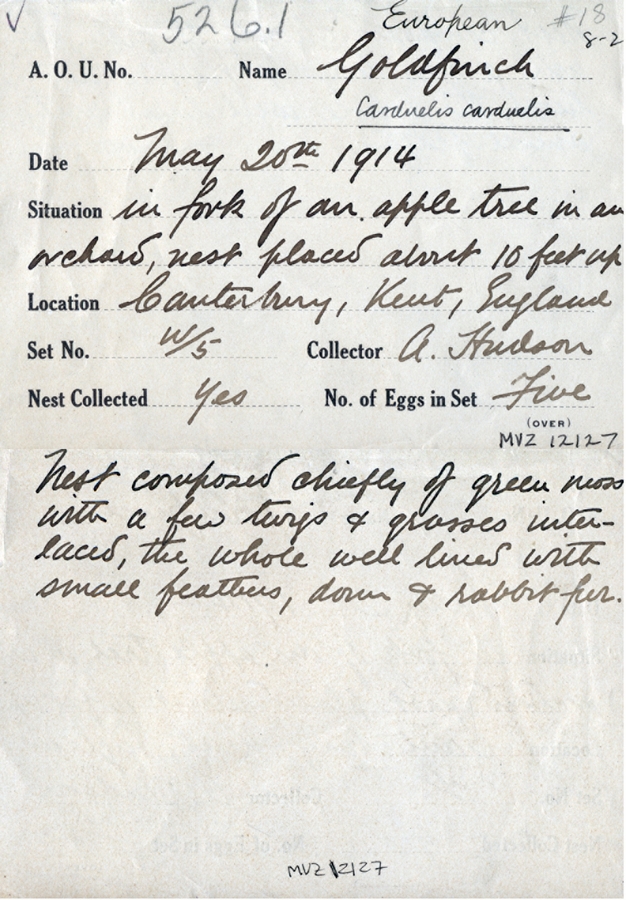 ✓ 526.1 European #18
8-2
A. O. U. No. Name Goldfinch
Carduelis carduelis
Date May 20th 1914
Situation in fork of an apple tree in an
orchard, nest placed about 10 feet up
Location Canterbury, Kent, England
Set No. W/5 Collector A. Hudson
Nest Collected Yes No. of Eggs in Set Five
(OVER)
MVZ 12127
Nest composed chiefly of green moss
with a few twigs & grasses inter-
laced, the whole well lined with
small feathers, down & rabbit fur.
MVZ 12127